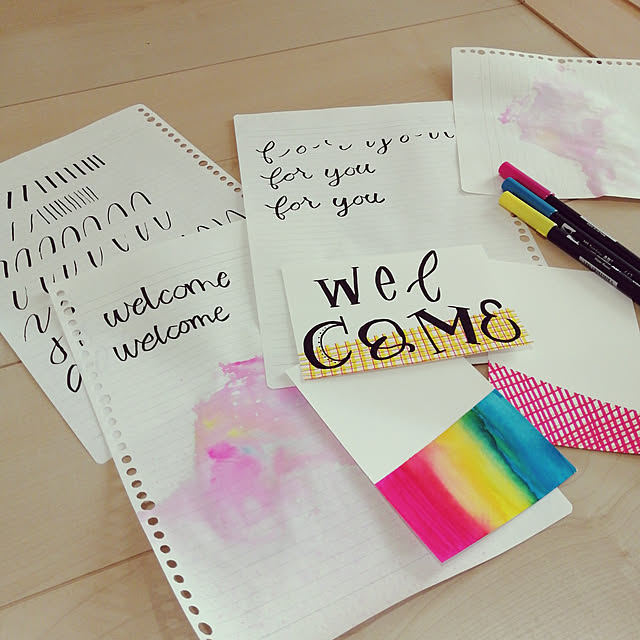 for you
for you
for you
welcome
welcome
wel
COME